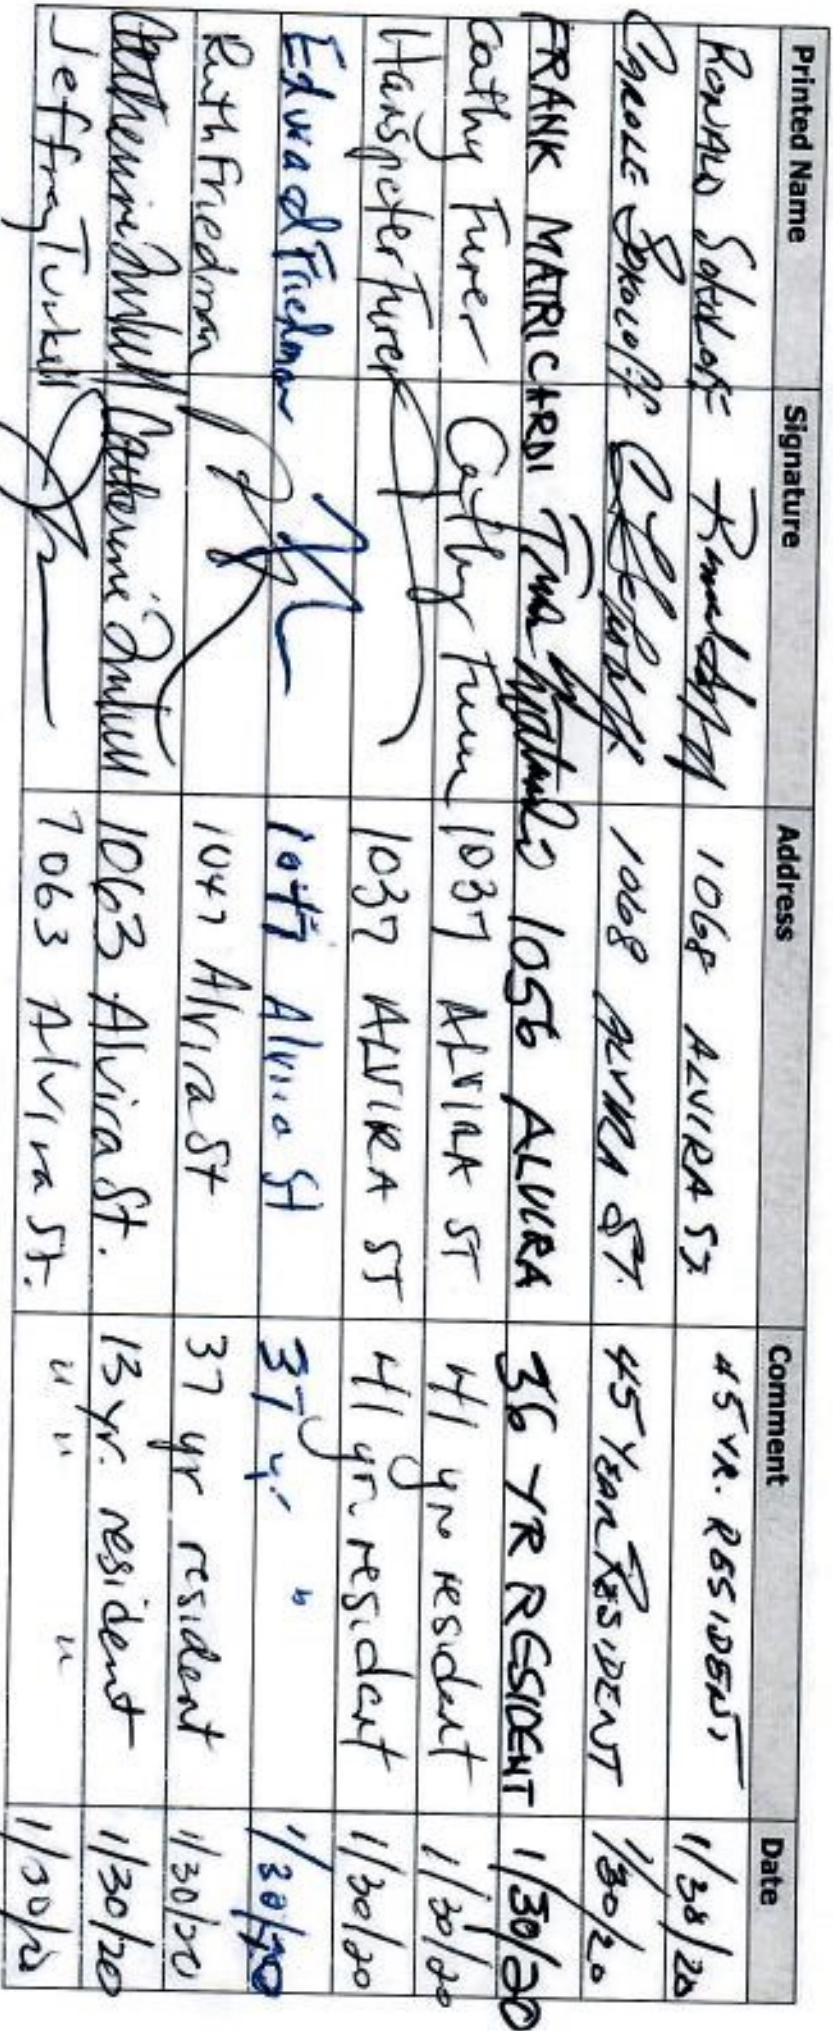 Printed Name Signature Address Comment Date
RONALD SOKOLOFF 1068 ALVIRA ST. 45 YR. RESIDENT 1/30/20
CAROLE SOKOLOFF 1068 ALVIRA ST. 45 YEAR RESIDENT 1/30/20
FRANK MATRICARDI 1056 ALVIRA 36 YR RESIDENT 1/30/20
Cathy Furer Cathy Furer 1037 ALVIRA ST 41 yr resident 1/30/20
Hanspeter Furer 1037 ALVIRA ST 41 yr. resident 1/30/20
Edward Friedman 1047 Alvira St 37 yr. " 1/30/20
Ruth Friedman 1047 Alvira St 37 yr resident 1/30/20
Catherine Turkell Catherine Turkell 1063 Alvira St. 13 yr. resident 1/30/20
Jeffrey Turkell 1063 Alvira St. " " " 1/30/20